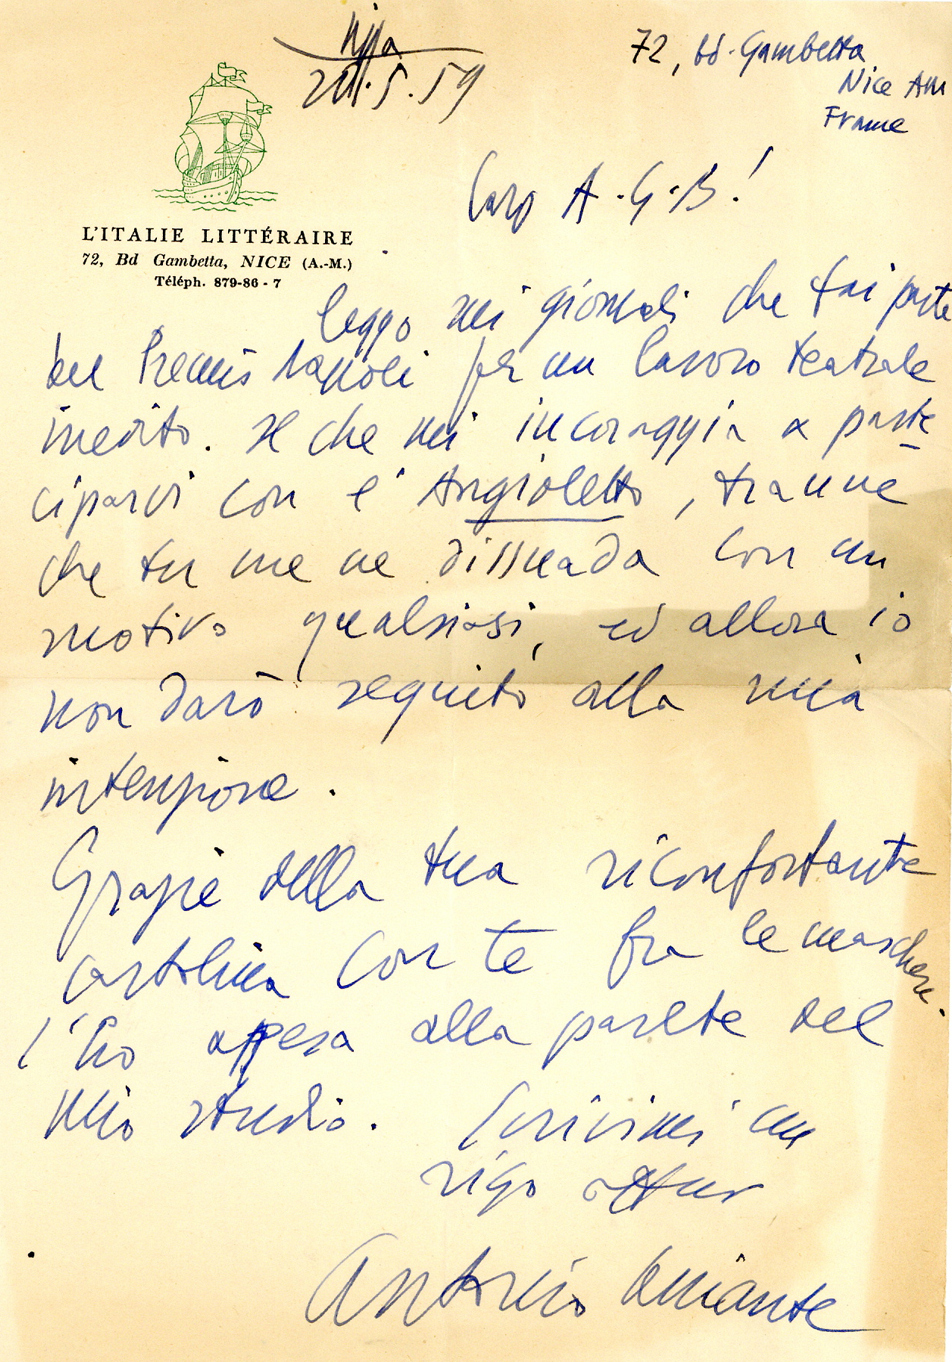 Nizza
20.5.59
72, bd. Gambetta
Nice AM
France
L'ITALIE LITTÉRAIRE
72, Bd Gambetta, NICE (A.-M.)
Téléph. 879-86 - 7
Caro A.G.B!
leggo nei giornali che fai parte
del Premio Napoli per un lavoro teatrale
inedito. Il che mi incoraggia a parte
ciparvi con l'Angioletto, tranne
che tu me ne dissuada con un
motivo qualsiasi, ed allora io
non darò seguito alla mia
intenzione.
Grazie della tua riconfortante
cartolina con te fra le maschere.
l'ho appesa alla parete del
mio studio. Scrivimi un
rigo
Antonio Aniante